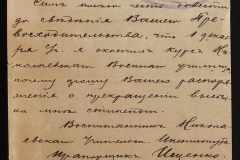 Симъ имѣю честь довести
до свѣдѣнія Вашего Пре-
восходительства, что 1 декаб-
ря с/г. я окончилъ курсъ Ни-
колаевскаго Военнаго училища,
почему прошу Вашего распоря-
женія о прекращеніи высылки
мнѣ стипендіи.
Воспитанникъ Никола-
евскаго Училища
Прапорщикъ Ищенко